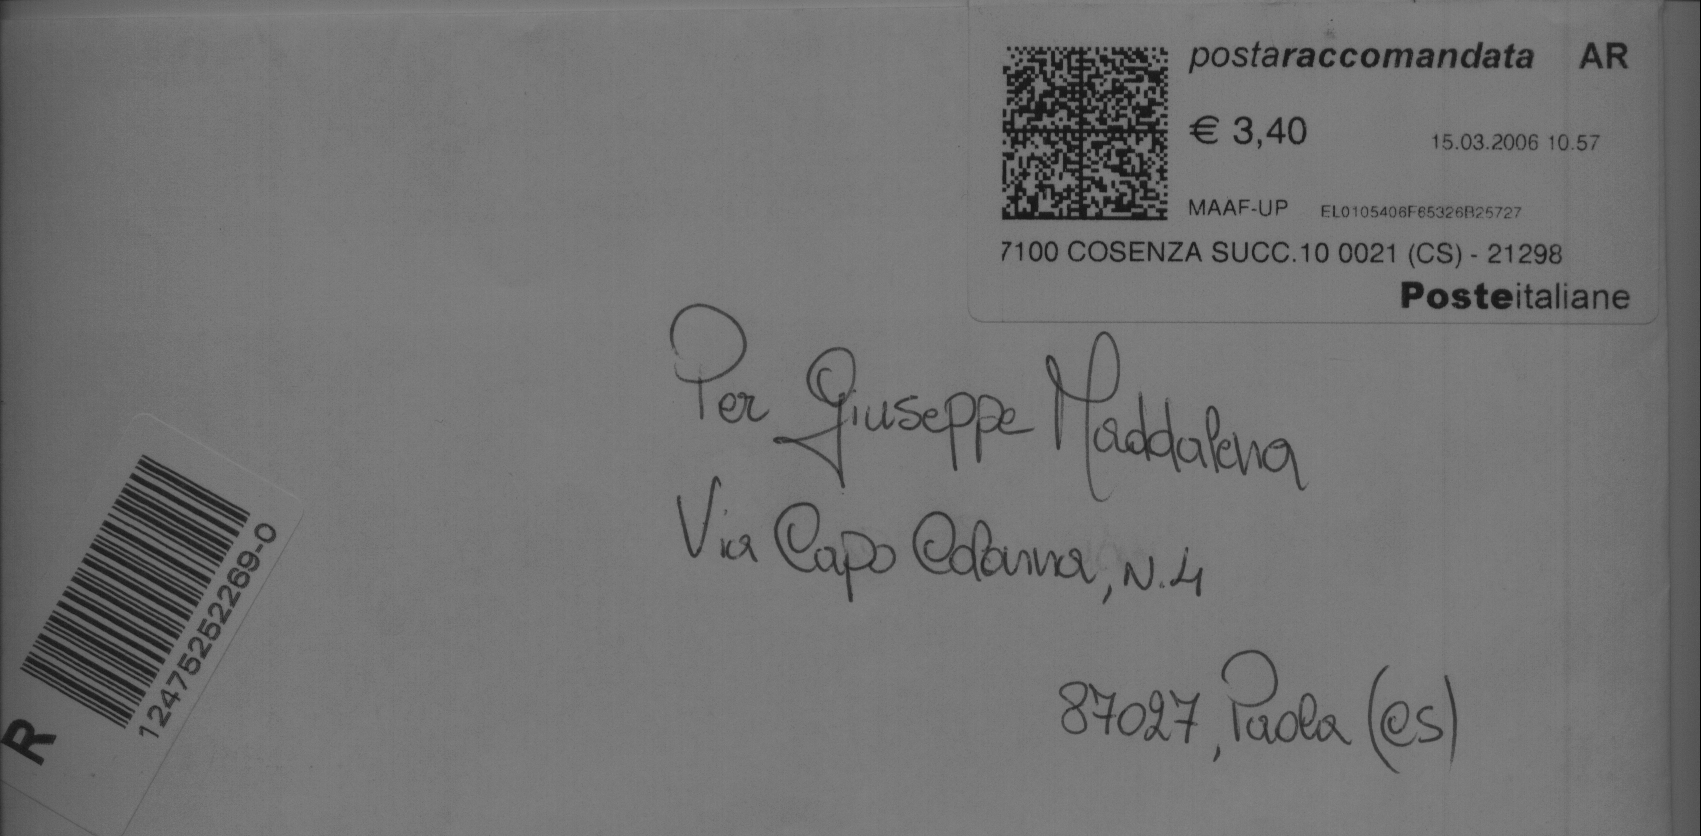 postaraccomandata AR
€ 3,40
15.03.2006 10.57
MAAF-UP EL0105406F65326B25727
7100 COSENZA SUCC.10 0021 (CS) - 21298
Posteitaliane
Per Giuseppe Maddalena
Via Capo Colonna, N.4
87027, Paola (CS)
12475252269-0
R